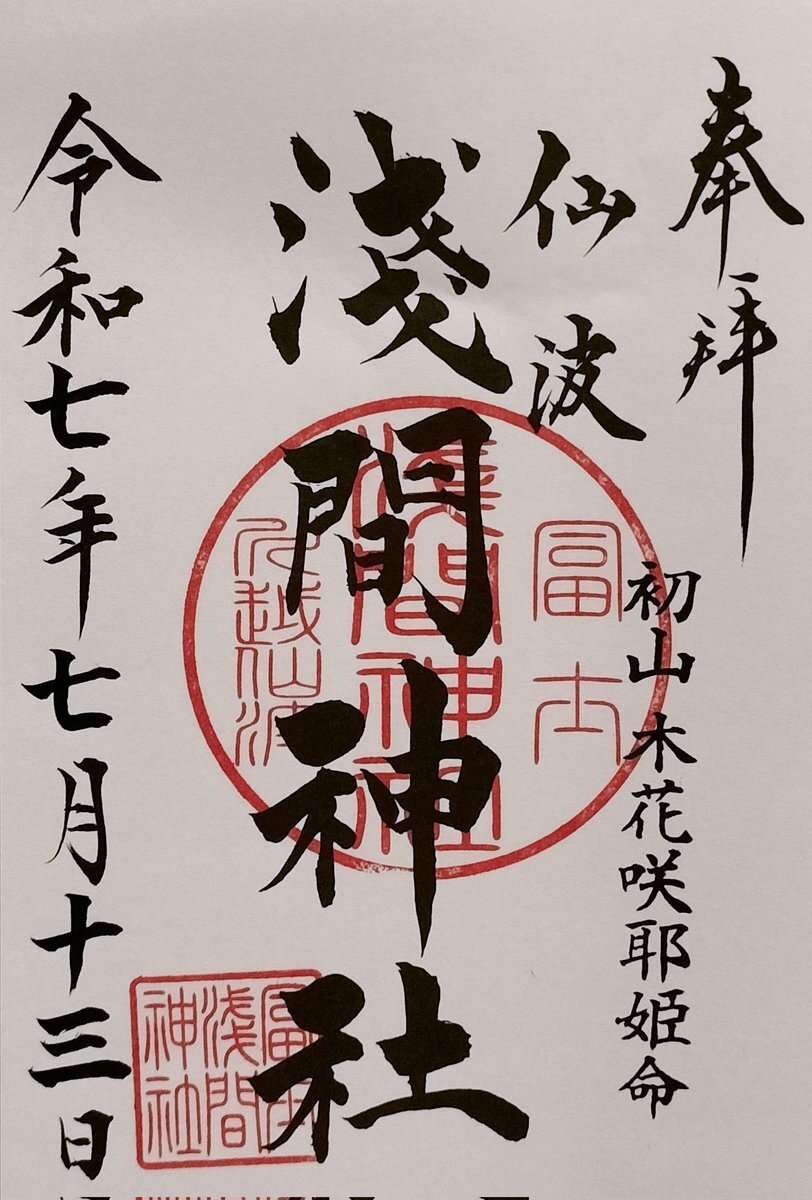 奉拝
初山 木花咲耶姫命
仙波
淺間神社
令和七年七月十三日
冨士
淺間神社
川越仙波
冨士
淺間
神社